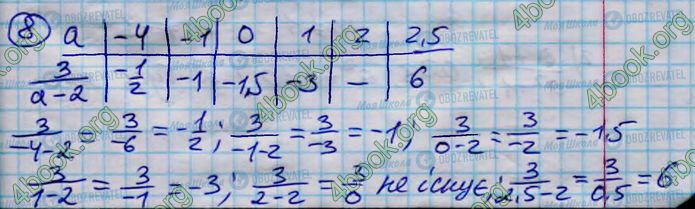 8 a | -4 | -1 | 0 | 1 | 2 | 2,5
3/(a-2) | -1/2 | -1 | -1,5 | -3 | – | 6
3/(-4-2) = 3/-6 = -1/2; 3/(-1-2) = 3/-3 = -1; 3/(0-2) = 3/-2 = -1,5
3/(1-2) = 3/-1 = -3; 3/(2-2) = 3/0 не існує; 3/(2,5-2) = 3/0,5 = 6
4book.org
Моя Школа
OBOZREVATEL